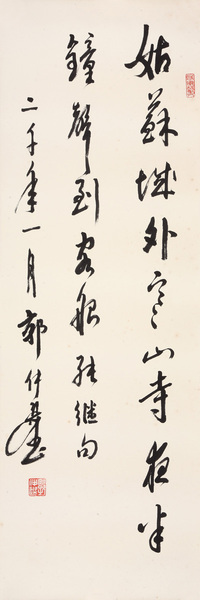 姑蘇城外寒山寺夜半
鐘聲到客船 張繼句
二千年一月 郭仲選